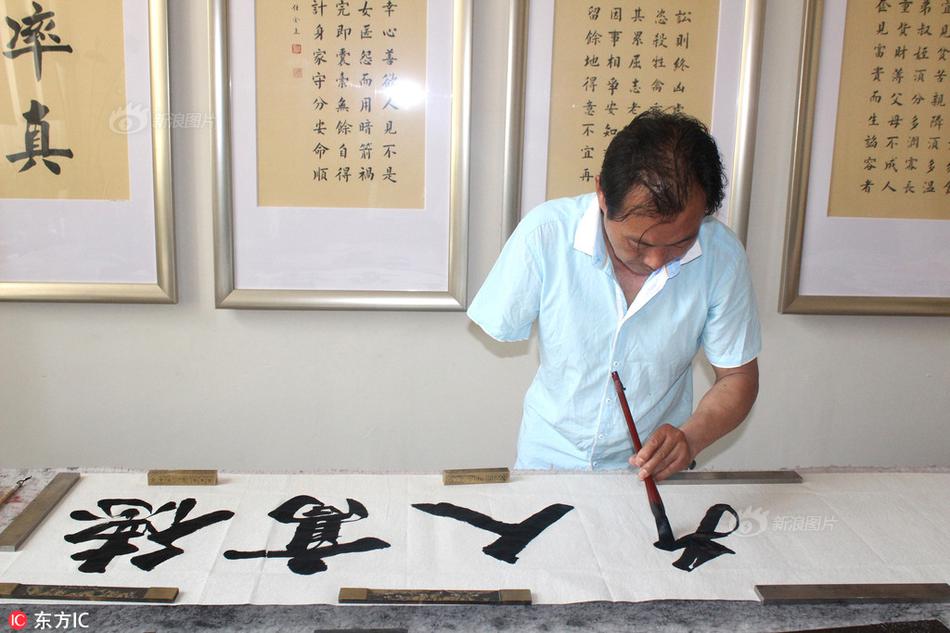 率真
幸心善欲人見不是
女匿怨而用暗箭禍
完即囊橐無餘自得
計身家守分安命順
訟則終凶處
恣殺牲禽
其累屈志老
因事相爭安知
留餘地得意不宜再
見貧苦親鄰須多溫
弟叔姪須分多潤寡長
重貲財薄父母不成人
奩見富貴而生諂容者
德高人
新浪图片
新浪图片
IC 东方IC